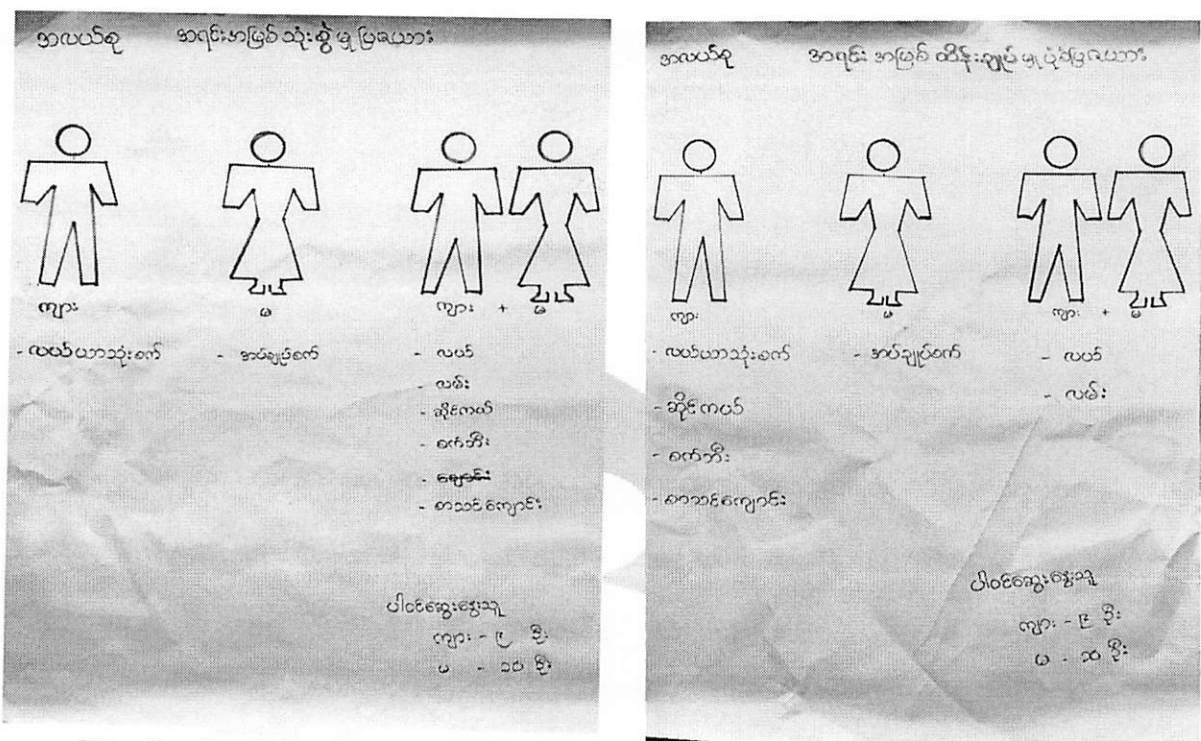 အလယ်စု အရင်းအမြစ် သုံးစွဲမှု ပြဇယား
ကျား မ ကျား + မ
- လယ်ယာသုံးစက် - အပ်ချုပ်စက် - လယ်
- လမ်း
- ဆိုင်ကယ်
- စက်ဘီး
- ချောင်း
- စာသင်ကျောင်း
ပါဝင်ဆွေးနွေးသူ
ကျား - ၉ ဦး
မ - ၁၀ ဦး
အလယ်စု အရင်းအမြစ် ထိန်းချုပ်မှု ပုံစံပြဇယား
ကျား မ ကျား + မ
- လယ်ယာသုံးစက် - အပ်ချုပ်စက် - လယ်
- ဆိုင်ကယ် - လမ်း
- စက်ဘီး
- စာသင်ကျောင်း
ပါဝင်ဆွေးနွေးသူ
ကျား - ၉ ဦး
မ - ၁၀ ဦး